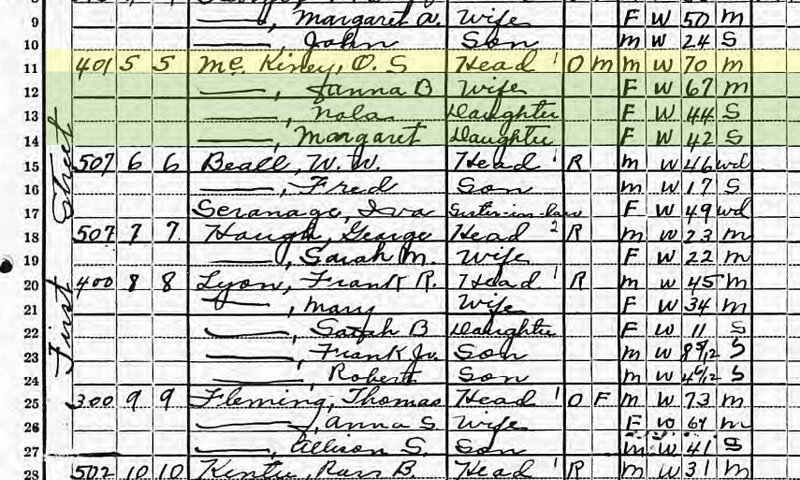 9 ——, Margaret A. Wife F W 50 m
10 ——, John Son m W 24 S
11 401 5 5 Mc. Kiney, O. S Head 1 O m m W 70 m
12 ——, B Wife F W 67 m
13 ——, Nola Daughter F W 44 S
14 ——, Margaret Daughter F W 42 S
15 507 6 6 Beall, W. W. Head 1 R m W 46 wd
16 ——, Fred Son m W 17 S
17 Seranage, Iva Sister-in-law F W 49 wd
18 507 7 7 Haugh, George Head 2 R m W 23 m
19 ——, Sarah M. Wife F W 22 m
20 400 8 8 Lyon, Frank R. Head 1 R m W 45 m
21 ——, Mary Wife F W 34 m
22 ——, Sarah B Daughter F W 11 S
23 ——, Frank Jr. Son m W S
24 ——, Robert Son m W S
25 300 9 9 Fleming, Thomas Head 1 O F m W 73 m
26 ——, Anna S. Wife F W m
27 ——, Allison S. Son m W 41 S
28 502 10 10 B. Head 1 R m W 31 m
First Street